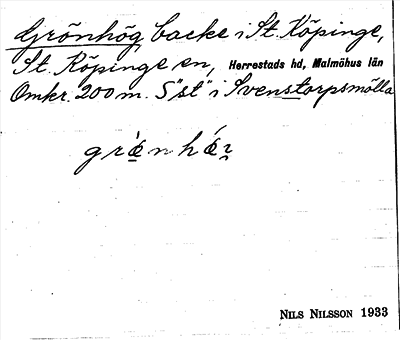 Grönhög, backe i St. Köpinge,
St. Köpinge sn, Herrestads hd, Malmöhus län
Omkr. 200 m. S "st" i Svenstorpsmölla
NILS NILSSON 1933